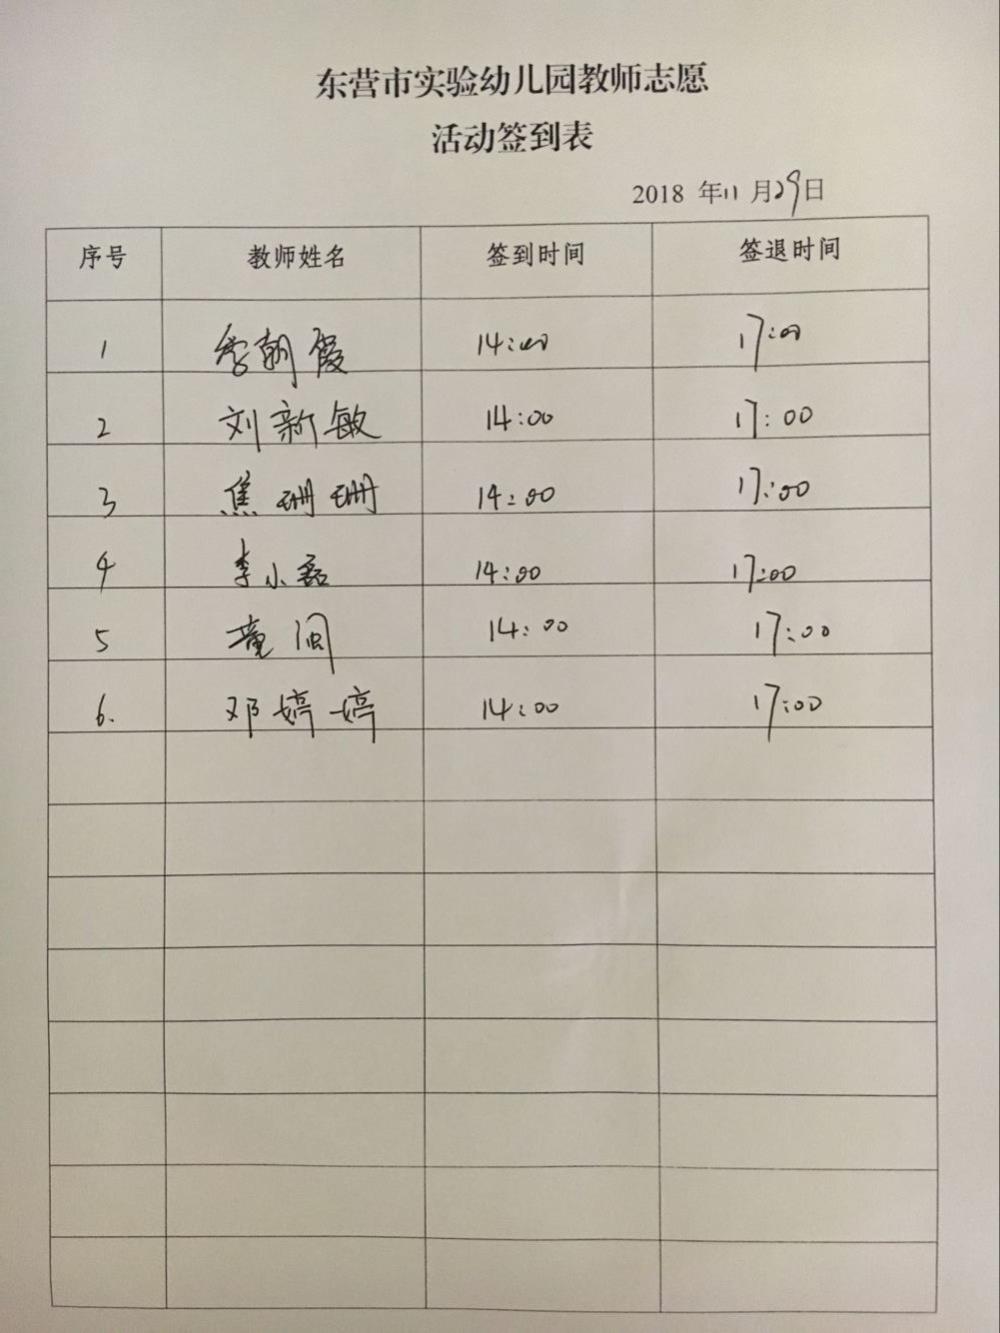 东营市实验幼儿园教师志愿
活动签到表
2018 年11月29日
序号 教师姓名 签到时间 签退时间
1 李朝霞 14:00 17:00
2 刘新敏 14:00 17:00
3 焦珊珊 14:00 17:00
4 李小磊 14:00 17:00
5 14:00 17:00
6. 邓婷婷 14:00 17:00